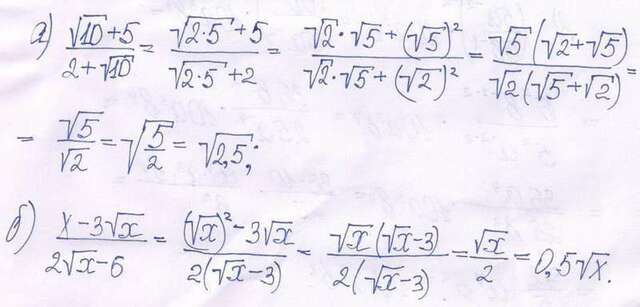 а) (√10+5)/(2+√10) = (√(2·5)+5)/(√(2·5)+2) = (√2·√5+(√5)²)/(√2·√5+(√2)²) = (√5(√2+√5))/(√2(√5+√2)) =
= √5/√2 = √(5/2) = √2,5;
б) (x-3√x)/(2√x-6) = ((√x)²-3√x)/(2(√x-3)) = (√x(√x-3))/(2(√x-3)) = √x/2 = 0,5√x.